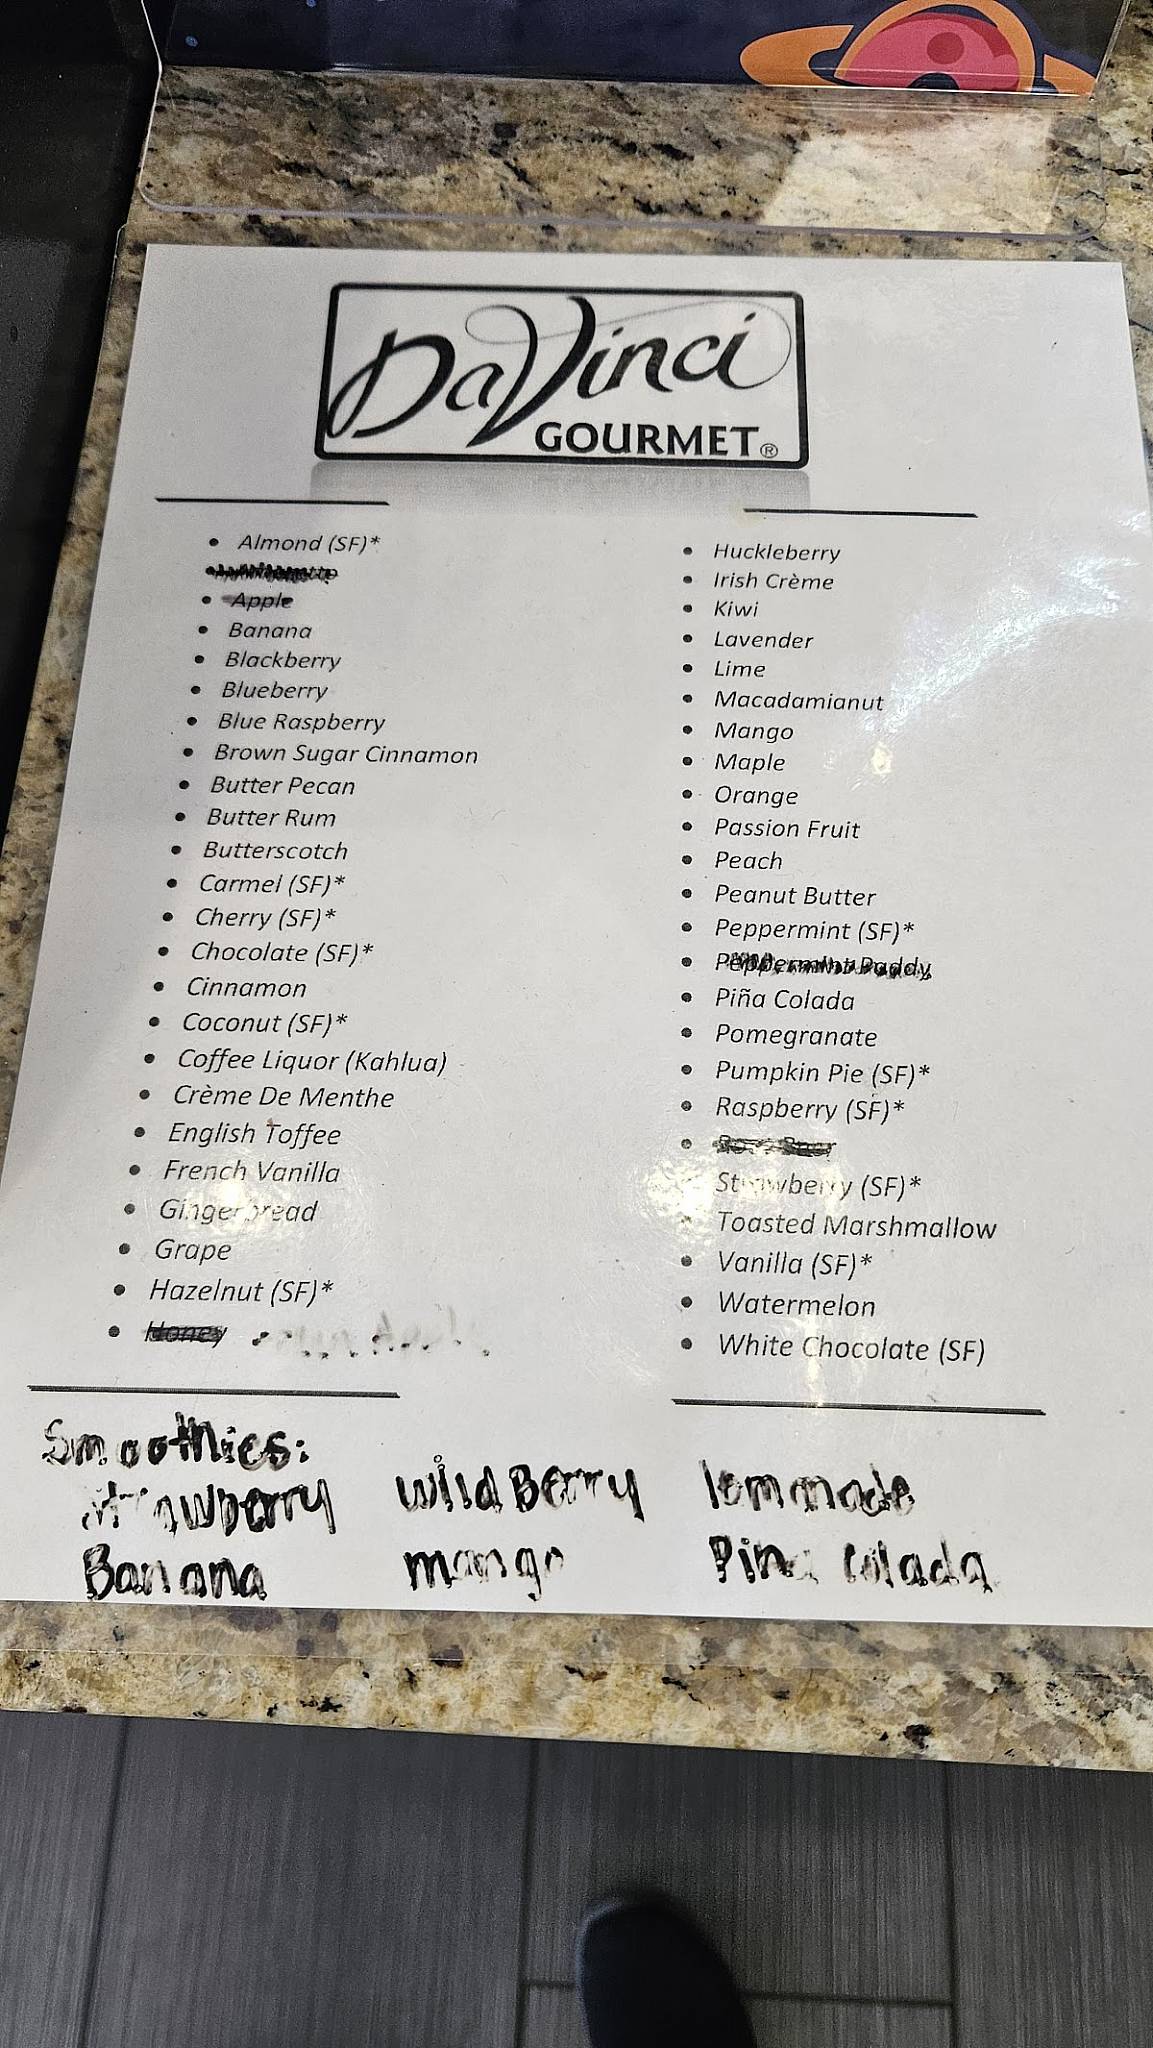 DaVinci
GOURMET®
Almond (SF)*
Apple
Banana
Blackberry
Blueberry
Blue Raspberry
Brown Sugar Cinnamon
Butter Pecan
Butter Rum
Butterscotch
Carmel (SF)*
Cherry (SF)*
Chocolate (SF)*
Cinnamon
Coconut (SF)*
Coffee Liquor (Kahlua)
Crème De Menthe
English Toffee
French Vanilla
Gingerbread
Grape
Hazelnut (SF)*
Honey
Huckleberry
Irish Crème
Kiwi
Lavender
Lime
Macadamianut
Mango
Maple
Orange
Passion Fruit
Peach
Peanut Butter
Peppermint (SF)*
Peppermint Paddy
Piña Colada
Pomegranate
Pumpkin Pie (SF)*
Raspberry (SF)*
Strawberry (SF)*
Toasted Marshmallow
Vanilla (SF)*
Watermelon
White Chocolate (SF)
Smoothies:
strawberry wildBerry lemonade
Banana mango Pina Colada